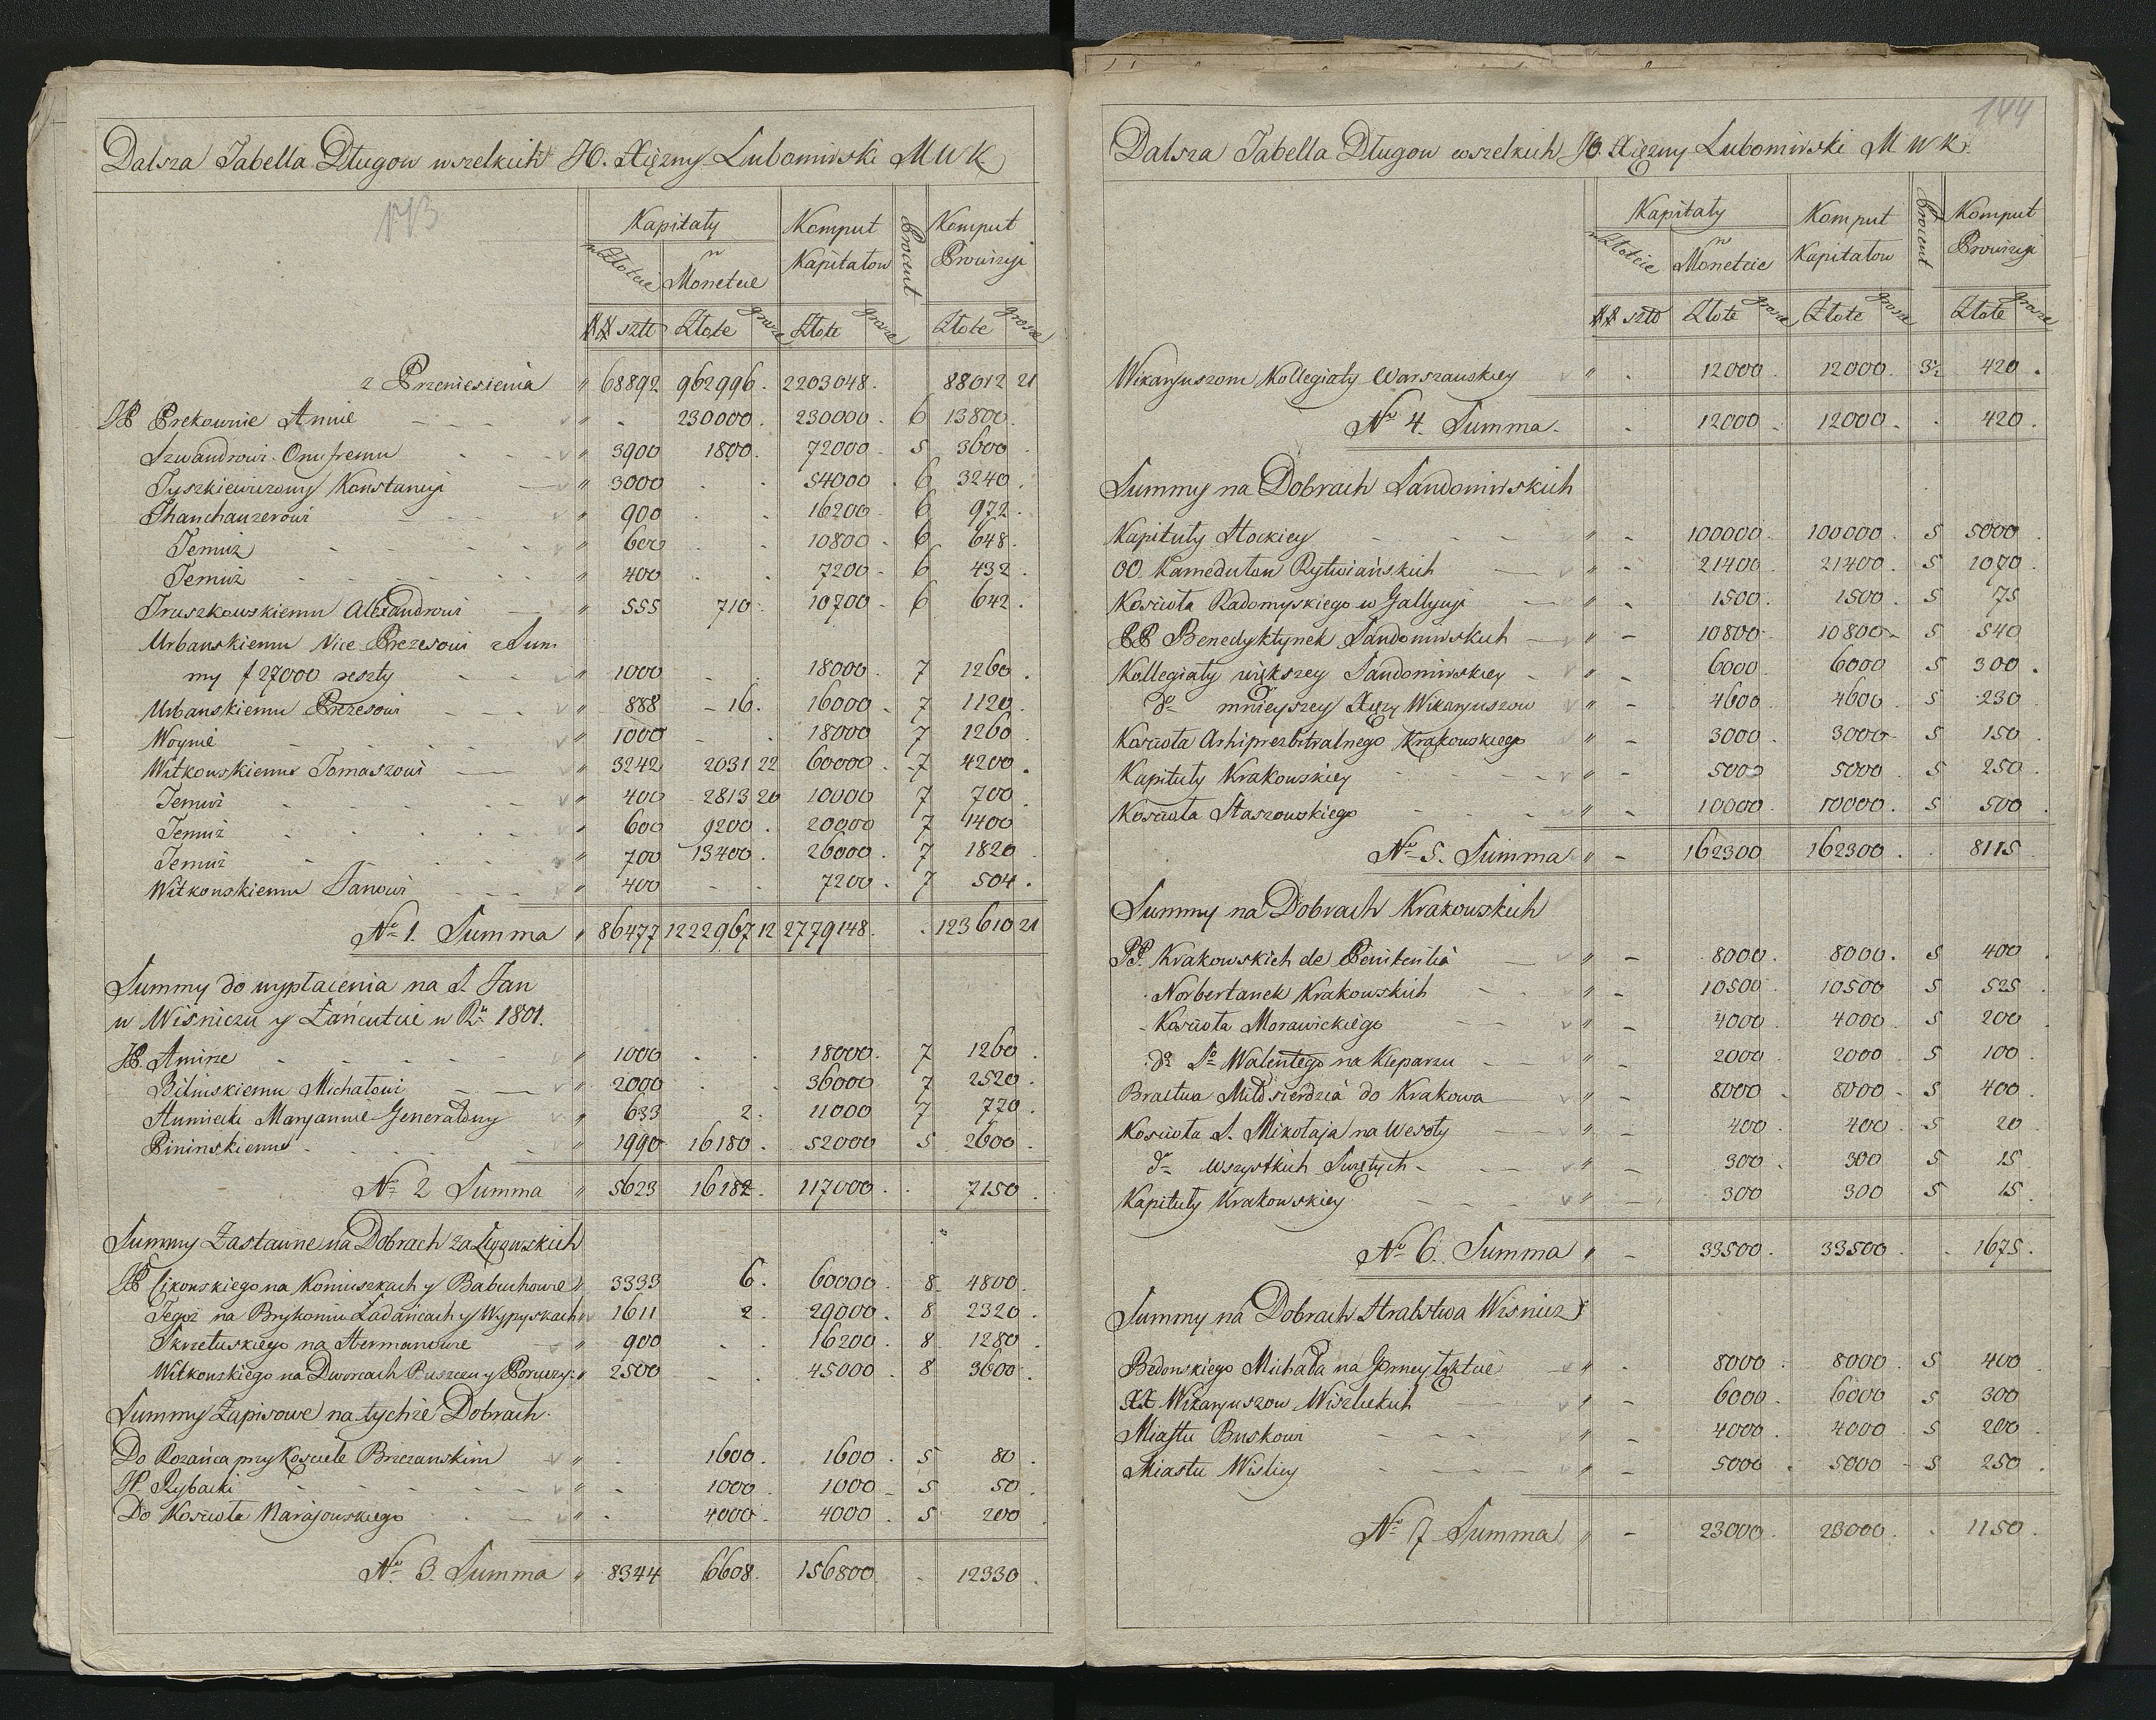 Dalsza Tabella Długow wszelkich JO. Xiężny Lubomirski M W K
113
Kapitały Komput Procent Komput
w Złocie w Monetcie Kapitałow Prowizyi
## szto Złote grosze Złote grosze Złote grosze
z Przeniesienia " 68892 962996. 2203048. 88012 21
JP Prekownie Annie " . 230000. 230000. 6 13800.
Szwandrowi Onufremu " 3900 1800. 72000 5 3600.
Tyszkiewiczowy Konstancyi " 3000 . . 54000. 6 3240.
Thanchauzerowi " 900 . 16200 6 972.
Temuż " 600 . . 10800. 6 648.
Temuż " 400 . . 7200. 6 432.
Truszkowskiemu Alexandrowi " 555 710. 10700. 6 642.
Urbanskiemu Vice Prezesowi z Sum
my f 27000 reszty " 1000 - . 18000. 7 1260.
Urbanskiemu Prezesowi " 888 - 16. 16000. 7 1120.
Woynie " 1000 - . 18000 7 1260.
Witkowskiemu Tomaszowi " 3242 2031 22 60000. 7 4200.
Temuż " 400 2813 20 10000 7 700.
Temuż " 600 9200. 20000 7 1400
Temuż " 700 13400. 26000. 7 1820.
Witkowskiemu Janowi " 400 - . 7200. 7 504.
No 1. Summa " 86477 1222967 12 2779148. . 123610 21
Summy do wypłacenia na S. Jan
w Wisniczu y Łańcucie w Ru 1801.
JP. Aminze " 1000 . . 18000. 7 1260.
Bilinskiemu Michałowi " 2000 . . 36000 7 2520.
Humiecki Maryannie Generałowy " 633 2. 11000 7 770.
Pininskiemu " 1990 16180. 52000 5 2600.
No 2 Summa " 5623 16182. 117000. . 7150.
Summy Zastawne na Dobrach
JP Cikowskiego na Koniuszkach y Babuchowie " 3333 6. 60000. 8 4800.
Tegoż na Brykoniu Ładańcach y Wypyskach " 1611 2. 29000. 8 2320.
Skrzetuskiego na Hermanowie " 900 . . 16200. 8 1280.
Witkowskiego na Dworcach Puszczu y Poruczy " 2500 - . 45000. 8 3600.
Summy Zapisowe na tychże Dobrach.
Do Rożańca przy Kosciele Brzeżanskim " . 1600. 1600. 5 80.
JP. Rybacki " - 1000. 1000 - 5 50.
Do Kościoła Narajowskiego " . 4000. 4000. 5 200
No 3. Summa " 8344 6608. 156800. . 12330.
144
Dalsza Tabella Długow wszelkich JO. Xiężny Lubomirski M W K.
Kapitały Komput Procent Komput
w Złotcie w Monetcie Kapitałow Prowizyi
## szto Złote grosze Złote grosze Złote grosze
Wikaryuszom Kollegiaty Warszawskiey " . 12000. 12000. 3½ 420.
No 4. Summa. . 12000. 12000. . 420.
Summy na Dobrach Sandomirskich
Kapituły Stockiey " - 100000. 100000. 5 5000.
OO. Kamedułow Rytwiańskich " - 21400. 21400. 5 1070.
Kościoła Radomyskiego w Gallycyi " - 1500. 1500. 5 75
PP Benedyktynek Sandomirskich " - 10800 10800 - 5 540
Kollegiaty większey Sandomirskiey " - 6000. 6000 5 300.
do mnieyszey Xięży Wikaryuszow " - 4600. 4600. 5 230
Kościoła Arhiprezbitralnego Krakowskiego " - 3000. 3000 5 150.
Kapituły Krakowskiey " - 5000 5000. 5 250.
Kościoła Staszowskiego " - 10000. 10000. 5 500.
No 5. Summa " - 162300 162300. . 8115
Summy na Dobrach Krakowskich
PP. Krakowskich de Penitentia " - 8000. 8000. 5 400.
Norbertanek Krakowskich " - 10500. 10500 5 525.
Kościoła Morawickiego " - 4000. 4000. 5 200.
do So Walentego na Kleparzu " - 2000. 2000. 5 100.
Bractwa Miłosierdzia do Krakowa " - 8000. 8000. 5 400.
Kosciota S. Mikołaja na Wesoły " - 400. 400. 5 20.
do Wszystkich Swiętych " - 300. 300 5 15.
Kapituły Krakowskiey " - 300 300 5 15.
No 6. Summa " - 33500. 33500. . 1675.
Summy na Dobrach Hrabstwa Wisnicz:
Bedonskiego Michała na Gorney " . 8000. 8000. 5 400.
XX Wikaryuszow Wislickich " - 6000. 6000 5 300
Miastu Buskowi " - 4000. 4000 5 200.
Miastu Wislicy " - 5000. 5000 - 5 250.
No 7 Summa " - 23000. 23000. . 1150.